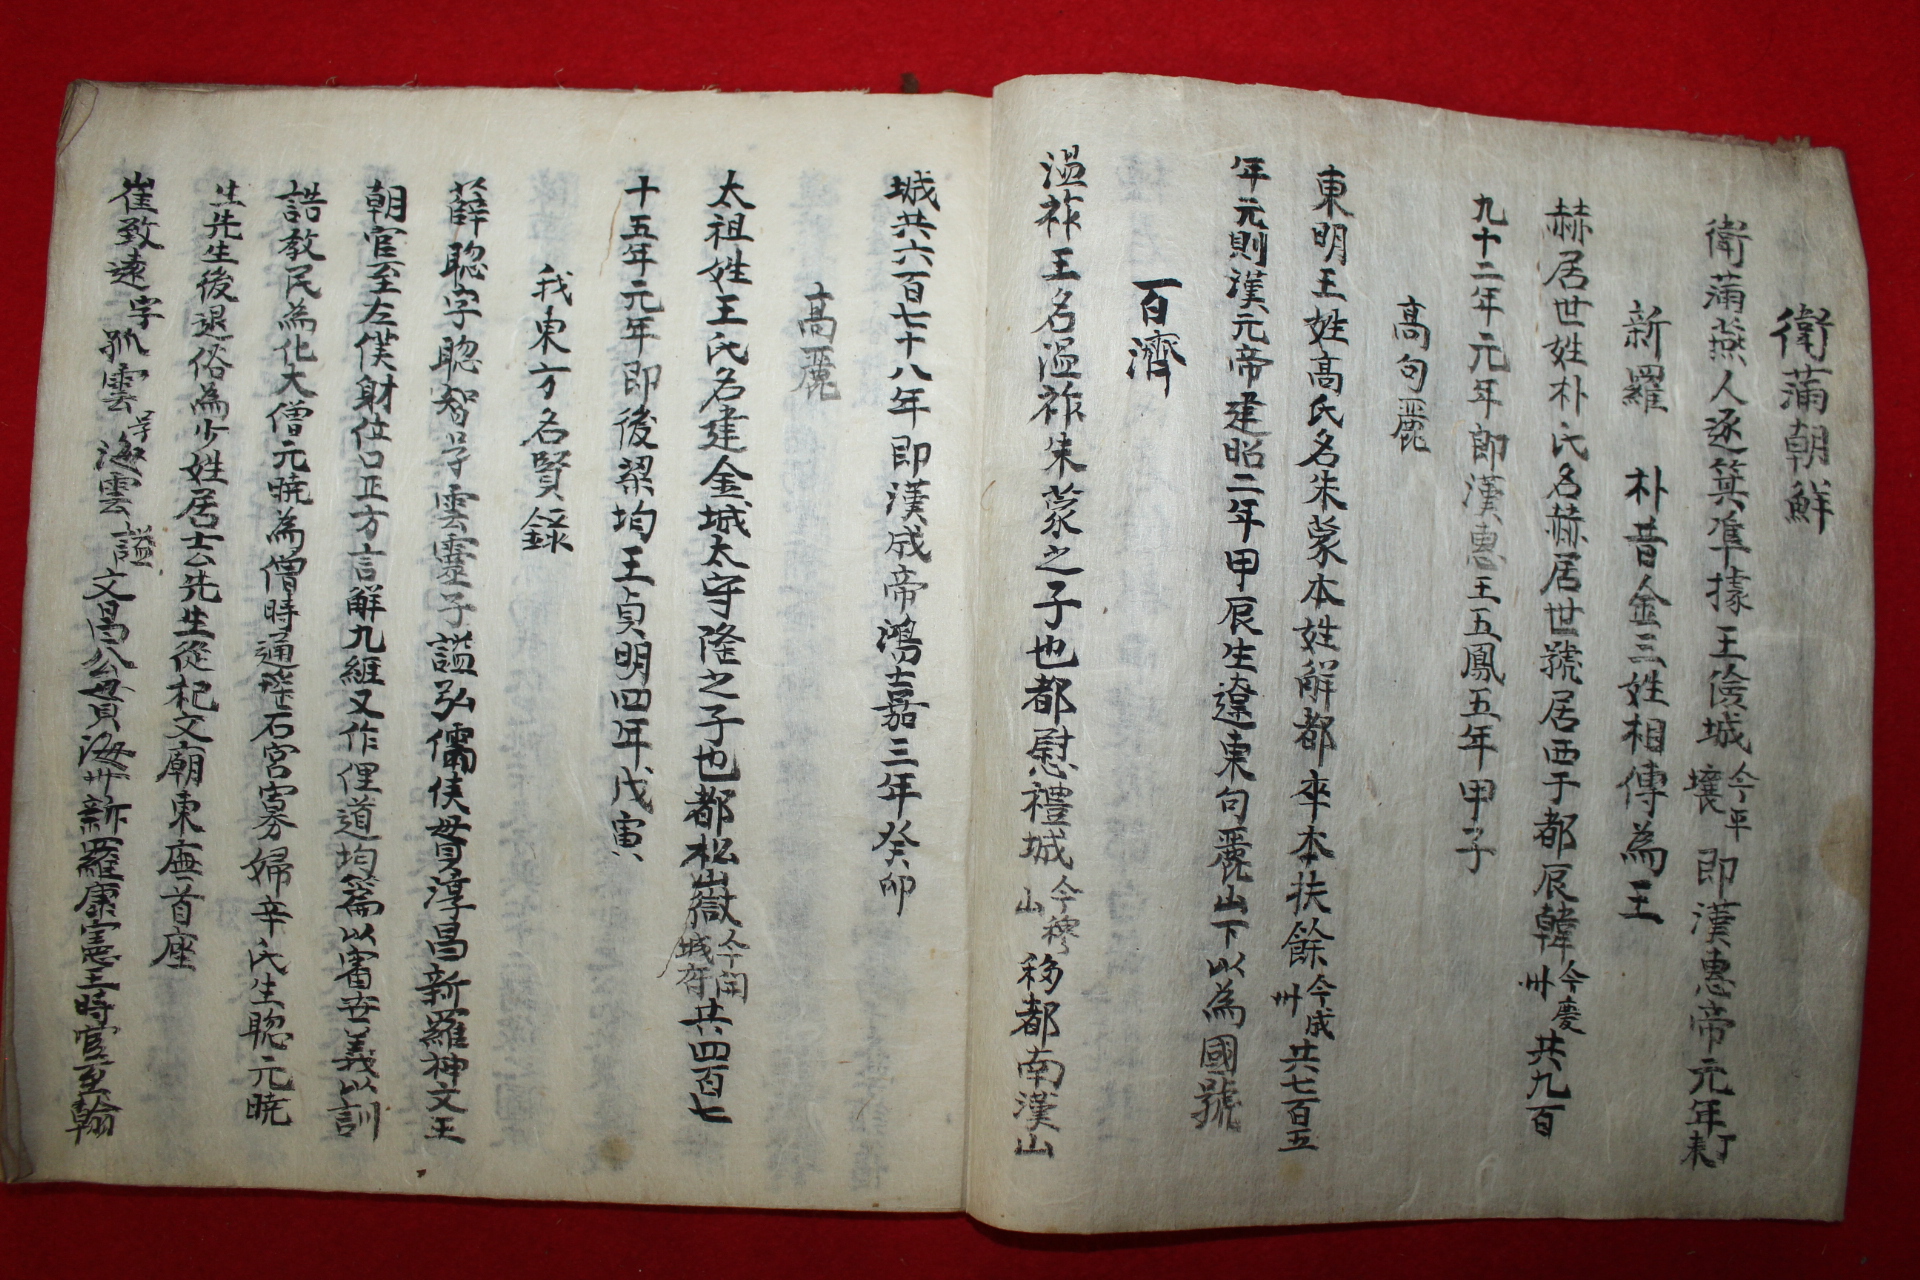 衛蒲朝鮮
衛蒲燕人逐箕準據王儉城今平壤即漢惠帝元年丁未
新羅 朴昔金三姓相傳為王
赫居世姓朴氏名赫居世號居西干都辰韓今慶州共九百
九十二年元年即漢惠王五鳳五年甲子
高句麗
東明王姓高氏名朱蒙本姓解都卒本扶餘今成州共七百五
年元則漢元帝建昭二年甲辰生遼東句麗山下以為國號
百濟
溫祚王名溫祚朱蒙之子也都慰禮城今稷山移都南漢山
城共六百七十八年即漢成帝鴻嘉三年癸卯
高麗
太祖姓王氏名建金城太守隆之子也都松嶽今開城府共四百七
十五年元年即後梁均王貞明四年戊寅
我東方名賢錄
薛聰字聰智号雲靈子謚弘儒侯母貫淳昌新羅神文王
朝官至左僕射位口正方言解九經又作俚道均篇以審世義以訓
誥教民為化大僧元曉為僧時通瑤石宮寡婦辛氏生聰元曉
生先生後退俗為少姓居士云先生從祀文廟東廡首座
崔致遠字孤雲号海雲謚文昌公貫海州新羅康憲王時官至翰